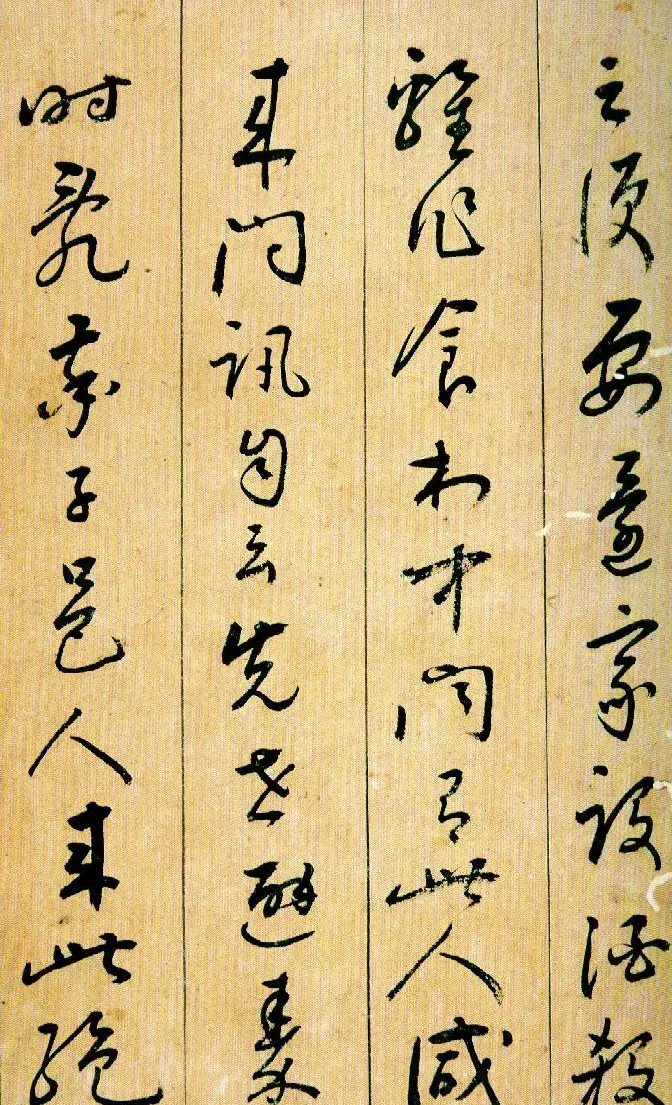 之便要還家設酒殺
雞作食村中聞有此人咸
來問訊自云先世避秦
時亂率子邑人來此絕